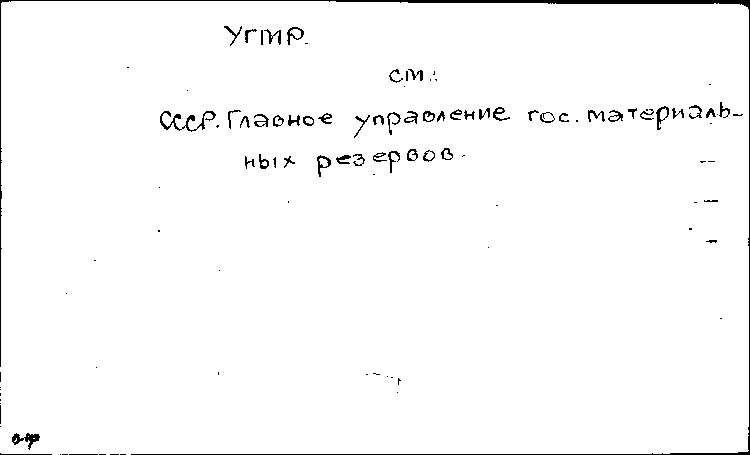 УГМР.
см.:
СССР. Главное управление гос. материаль-
ных резервов.